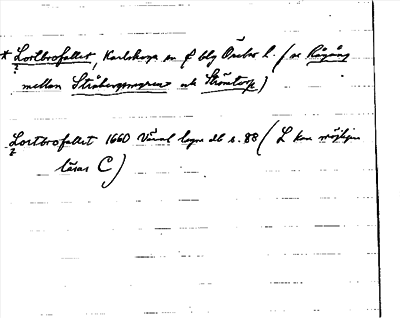 * Lortbrofallet, Karlskoga sn o f blg Örebro l. (se Rågång
mellan Stråbergsmyren och Strömtorp)
Lortbrofallet 1660 Värml lagm db s. 88 (L kan möjligen
läsas C)